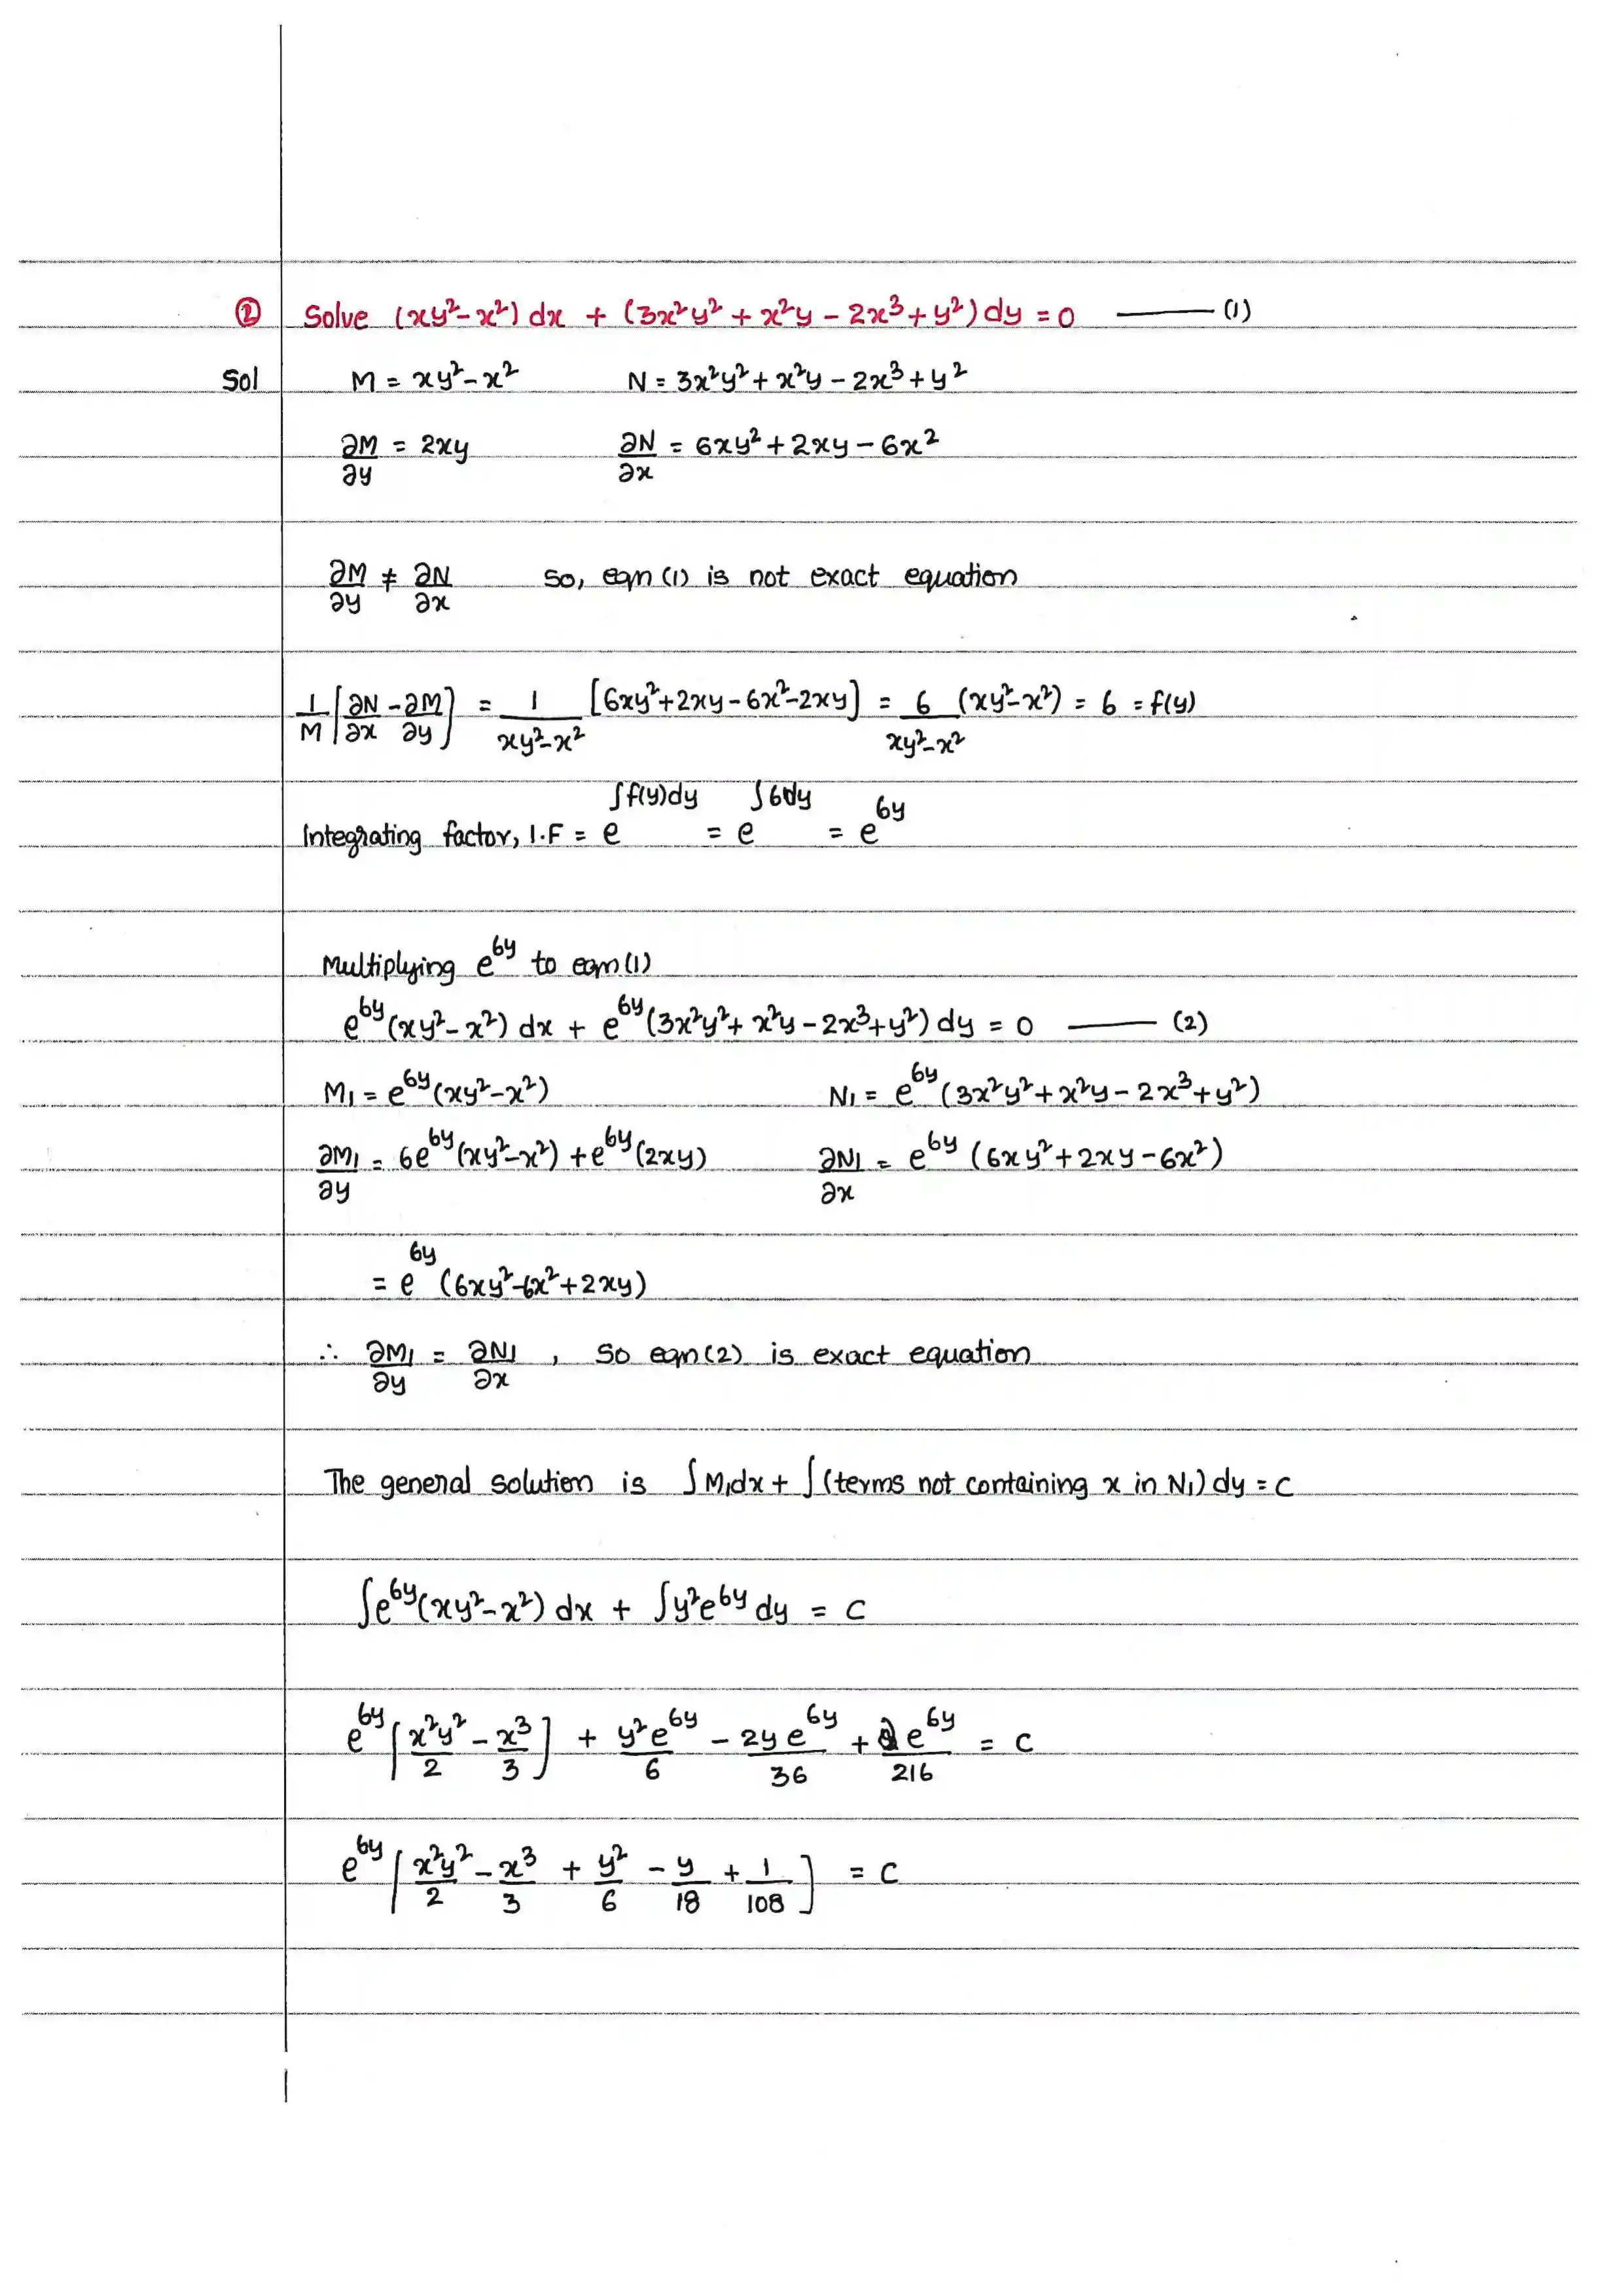 ② Solve (xy²-x²) dx + (3x²y² + x²y - 2x³ + y²) dy = 0 ——— (1)
Sol M = xy² - x² N = 3x²y² + x²y - 2x³ + y²
∂M/∂y = 2xy ∂N/∂x = 6xy² + 2xy - 6x²
∂M/∂y ≠ ∂N/∂x so, eqn (1) is not exact equation
1/M [∂N/∂x - ∂M/∂y] = 1/(xy²-x²) [6xy²+2xy-6x²-2xy] = 6/(xy²-x²) (xy²-x²) = 6 = f(y)
Integrating factor, I.F = e^∫f(y)dy = e^∫6dy = e^6y
Multiplying e^6y to eqn (1)
e^6y (xy²-x²) dx + e^6y (3x²y² + x²y - 2x³ + y²) dy = 0 ——— (2)
M₁ = e^6y (xy²-x²) N₁ = e^6y (3x²y² + x²y - 2x³ + y²)
∂M₁/∂y = 6e^6y (xy²-x²) + e^6y (2xy) ∂N₁/∂x = e^6y (6xy² + 2xy - 6x²)
= e^6y (6xy² - 6x² + 2xy)
∴ ∂M₁/∂y = ∂N₁/∂x , so eqn (2) is exact equation
The general solution is ∫M₁dx + ∫(terms not containing x in N₁) dy = c
∫e^6y (xy²-x²) dx + ∫y²e^6y dy = c
e^6y [x²y²/2 - x³/3] + y²e^6y/6 - 2y e^6y/36 + 2e^6y/216 = c
e^6y [x²y²/2 - x³/3 + y²/6 - y/18 + 1/108] = c